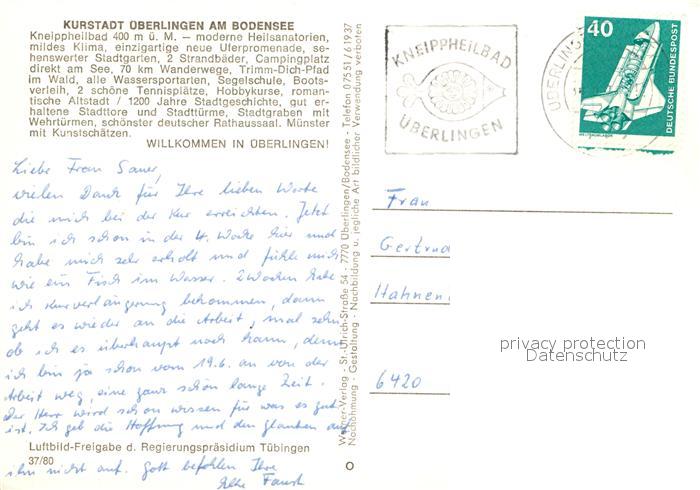 KURSTADT ÜBERLINGEN AM BODENSEE
Kneippheilbad 400 m ü. M. – moderne Heilsanatorien,
mildes Klima, einzigartige neue Uferpromenade, se-
henswerter Stadtgarten, 2 Strandbäder, Campingplatz
direkt am See, 70 km Wanderwege, Trimm-Dich-Pfad
im Wald, alle Wassersportarten, Segelschule, Boots-
verleih, 2 schöne Tennisplätze, Hobbykurse, roman-
tische Altstadt / 1200 Jahre Stadtgeschichte, gut er-
haltene Stadttore und Stadttürme, Stadtgraben mit
Wehrtürmen, schönster deutscher Rathaussaal. Münster
mit Kunstschätzen.
WILLKOMMEN IN ÜBERLINGEN!
Liebe Frau Sauer,
vielen Dank für Ihre lieben Worte
die mich bei der Kur erreichten. Jetzt
bin ich schon in der 4. Woche hier und
habe mich sehr erholt und fühle mich
wie ein Fisch im Wasser. 2 Wochen habe
ich Kurverlängerung bekommen, dann
geht es wieder an die Arbeit, mal sehn
ob ich es überhaupt noch kann, denn
ich bin ja schon vom 19.6. an von der
Arbeit weg, eine ganz schön lange Zeit.
Der Herr wird schon wissen für was es gut
ist. Ich geb die Hoffnung und den Glauben an
ihn nicht auf. Gott befohlen Ihre
Faust
Luftbild-Freigabe d. Regierungspräsidium Tübingen
37/80
Werner-Verlag - St.-Ulrich-Straße 54 - 7770 Überlingen/Bodensee - Telefon 07551/61937
Nachahmung - Gestaltung - Nachbildung u. jegliche Art bildlicher Verwendung verboten
KNEIPPHEILBAD
ÜBERLINGEN
ÜBERLINGEN
40
DEUTSCHE BUNDESPOST
WELTRAUMLABOR
Frau
Gertrud
Hahnen
6420
privacy protection
Datenschutz